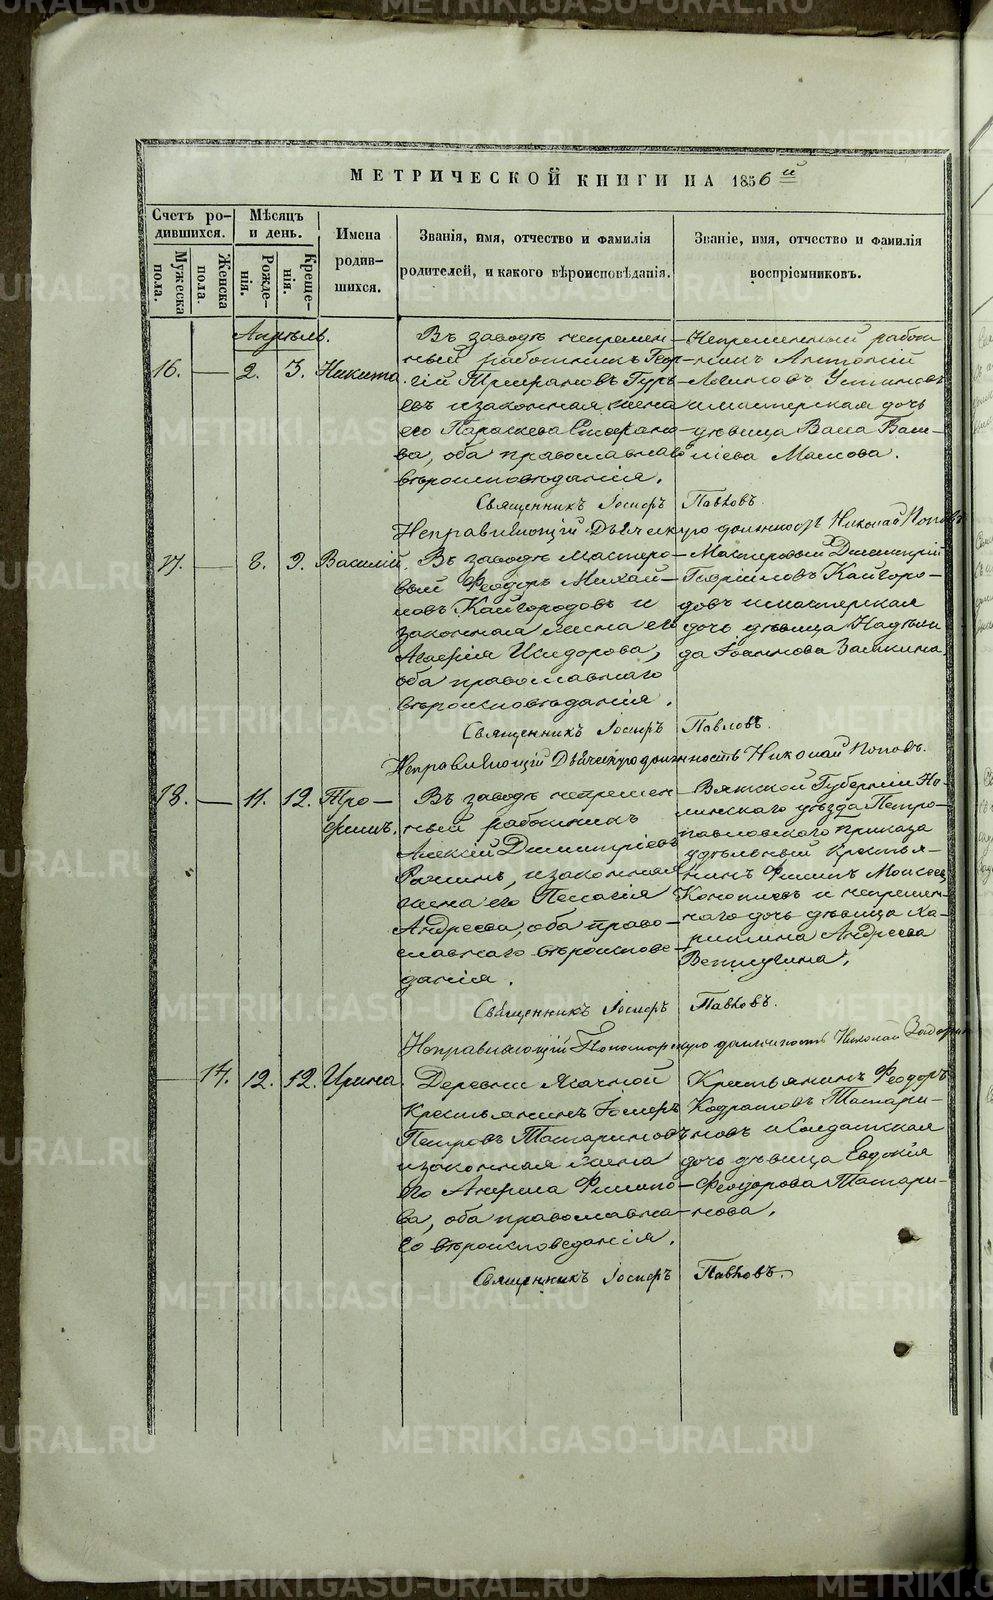 МЕТРИЧЕСКОЙ КНИГИ НА 1856й
Счетъ родившихся.
Мужеска пола.
Женска пола.
Мѣсяцъ и день.
Рожденія.
Крещенія.
Имена родившихся.
Званія, имя, отчество и фамилія
родителей, и какого вѣроисповѣданія.
Званіе, имя, отчество и фамилія
воспріемниковъ.
Апрѣль.
16. — 2. 3. Никита.
Въ заводѣ непремен-
ный работникъ Геор-
гій
евъ и законная жена
его Параскева
ва, оба православнаго
вѣроисповѣданія.
Непременный работ-
никъ Антоній
Логиновъ Устиновъ
и мастерская дочь
дѣвица Васса Васи-
ліева
Священникъ Іосифъ Павловъ.
Исправляющій Дьяческую должность Николай Поповъ
17. — 8. 9. Василій.
Въ заводѣ мастеро-
вый Феодоръ Михай-
ловъ Кайгородовъ и
законная жена его
Агафія Исидорова,
оба православнаго
вѣроисповѣданія.
Мастеровый Димитрій
Гавріиловъ Кайгоро-
довъ и мастерская
дочь дѣвица Надеж-
да Іоаннова
Священникъ Іосифъ Павловъ.
Исправляющій Дьяческую должность Николай Поповъ.
18. — 11. 12. Тро-
фимъ.
Въ заводѣ непремен-
ный работникъ
Алексій Димитріевъ
и законная
жена его Пелагія
Андреева, оба право-
славнаго вѣроиспове-
данія.
Вятской Губерніи Но-
линскаго уѣзда Петро-
павловскаго приказа
удѣльный крестья-
нинъ Филипъ Моисеев
и непремен-
наго дочь дѣвица Ха-
ритина Андреева
Священникъ Іосифъ Павловъ.
Исправляющій Пономарскую должность Николай
— 14. 12. 12. Ирина.
Деревни
Крестьянинъ Іосифъ
Петровъ Татариновъ
и законная жена
его Анфиса Филипо-
ва, оба православна-
го вѣроисповеданія.
Крестьянинъ Феодоръ
Кодратовъ Татари-
новъ и Солдатская
дочь дѣвица Евдокія
Феодорова Татари-
нова.
Священникъ Іосифъ Павловъ.
METRIKI.GASO-URAL.RU